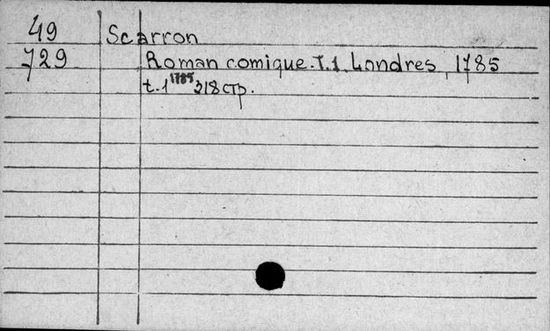 49 Scarron
729 Roman comique. T.1. Londres, 1785
t.1 1785 318 стр.